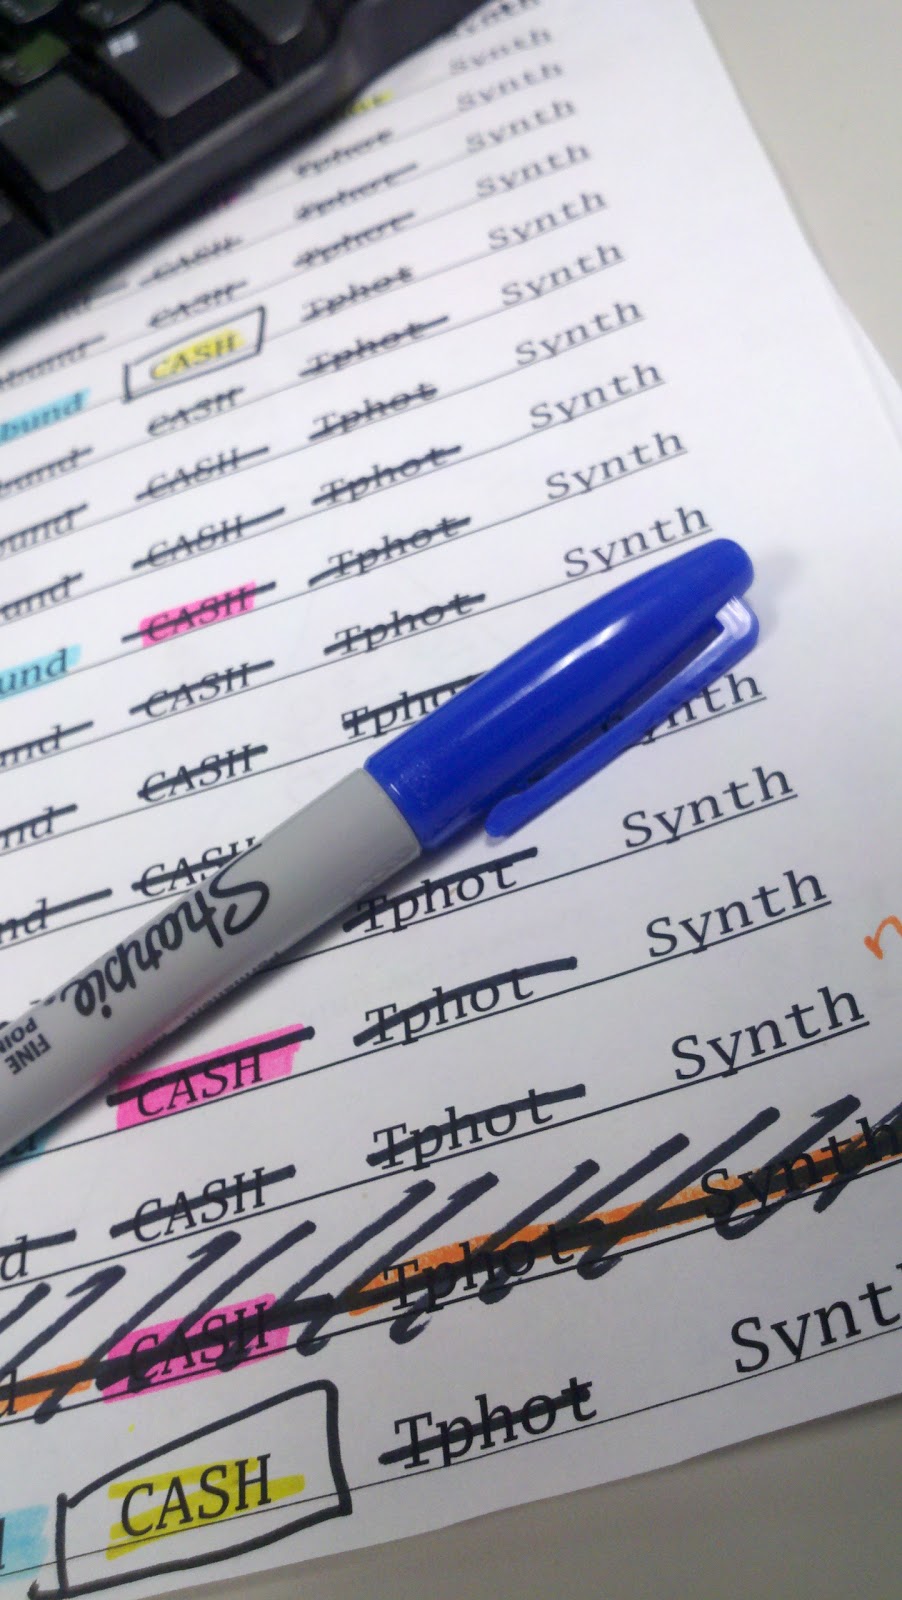 Synth
Synth
Tphot Synth
CASH Tphot Synth
bund CASH Tphot Synth
bund CASH Tphot Synth
bund CASH Tphot Synth
ound CASH Tphot Synth
und CASH Tphot Synth
und CASH Tphot Synth
nd CASH Tphot Synth
nd CASH Tphot
nd CASH Synth
Tphot Synth
CASH Tphot Synth
d CASH Tphot Synth
d CASH Tphot Synth
d CASH Tphot Synth
Sharpie
FINE